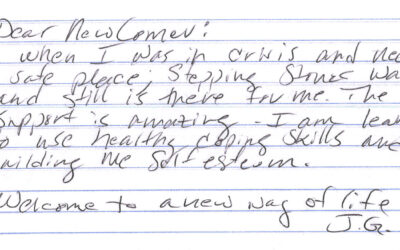 Dear NewComer:
when I was in crisis and nee
safe place, Stepping Stones wa
and still is there for me. The
support is amazing - I am lear
to use healthy coping skills and
uilding me self esteem.
Welcome to a new way of life
J.G.